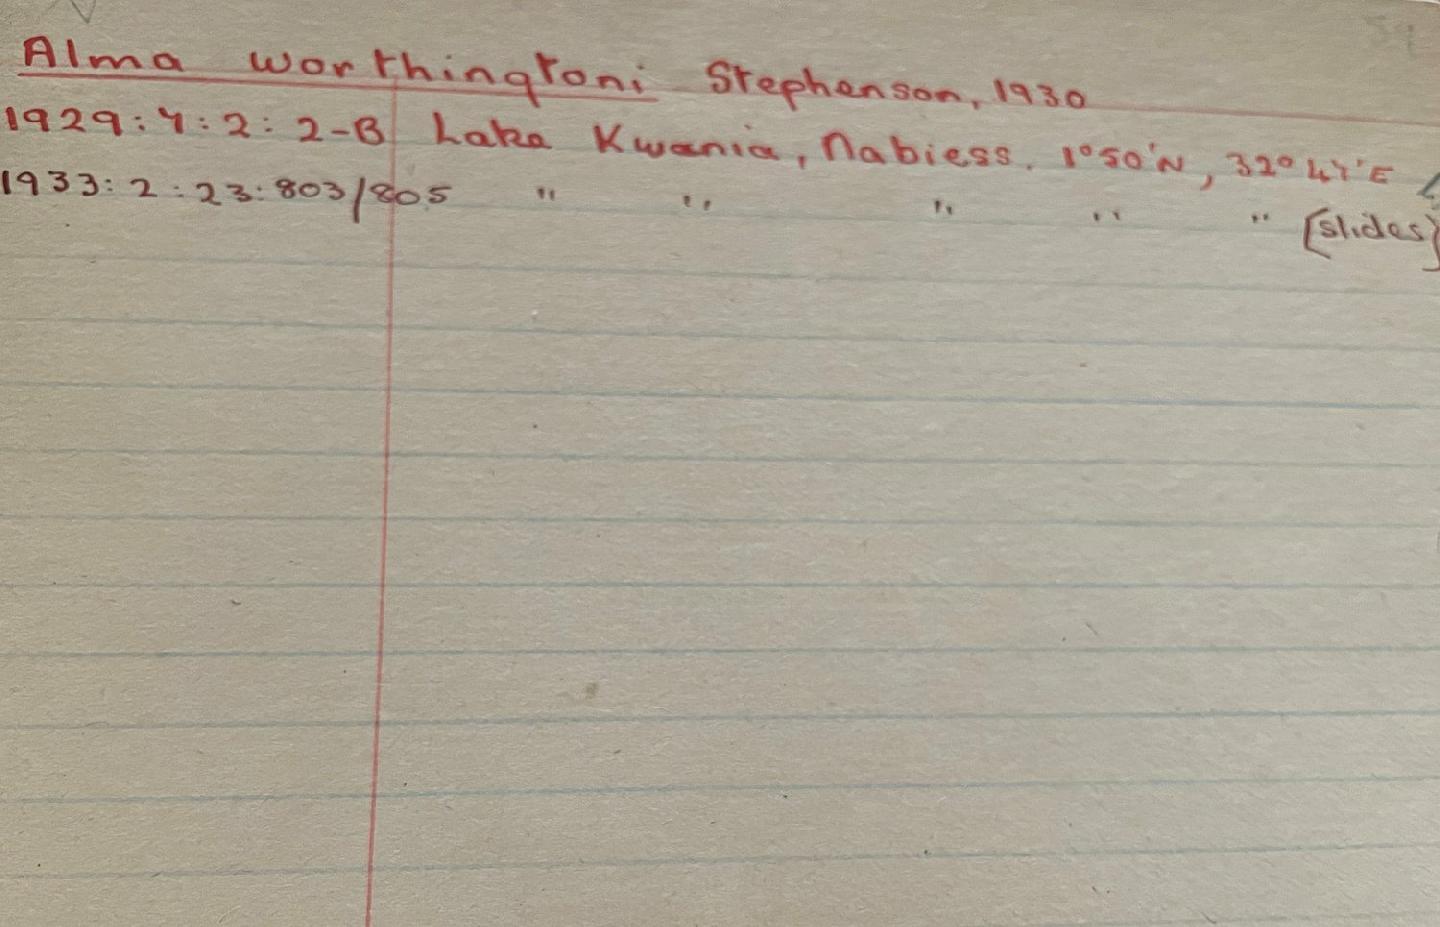 Alma worthingtoni Stephenson, 1930
1929:4:2:2-B Lake Kwania, Nabiess. 1°50'N, 32°47'E
1933:2:23:803/805 " " " " " [slides]